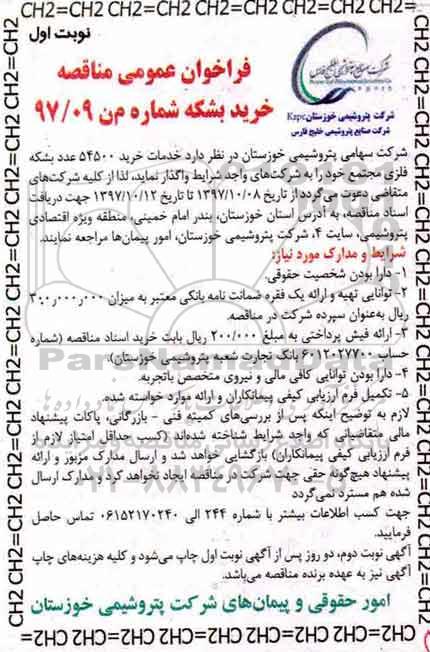 نوبت اول
شرکت صنایع پتروشیمی خلیج فارس
فراخوان عمومی مناقصه
خرید بشکه شماره م‌ن ۹۷/۰۹
شرکت پتروشیمی خوزستان Kzpc
شرکت صنایع پتروشیمی خلیج فارس
شرکت سهامی پتروشیمی خوزستان در نظر دارد خدمات خرید ۵۴۵۰۰ عدد بشکه
فلزی مجتمع خود را به شرکت‌های واجد شرایط واگذار نماید، لذا از کلیه شرکت‌های
متقاضی دعوت می‌گردد از تاریخ ۱۳۹۷/۱۰/۰۸ تا تاریخ ۱۳۹۷/۱۰/۱۲ جهت دریافت
اسناد مناقصه، به آدرس استان خوزستان، بندر امام خمینی، منطقه ویژه اقتصادی
پتروشیمی، سایت ۴، شرکت پتروشیمی خوزستان، امور پیمان‌ها مراجعه نمایند.
شرایط و مدارک مورد نیاز:
۱- دارا بودن شخصیت حقوقی.
۲- توانایی تهیه و ارائه یک فقره ضمانت نامه بانکی معتبر به میزان ۳۰۰٫۰۰۰٫۰۰۰
ریال به‌عنوان سپرده شرکت در مناقصه.
۳- ارائه فیش پرداختی به مبلغ ۲۰۰/۰۰۰ ریال بابت خرید اسناد مناقصه (شماره
حساب ۶۰۱۲۰۲۷۷۰۰ بانک تجارت شعبه پتروشیمی خوزستان).
۴- دارا بودن توانایی کافی مالی و نیروی متخصص باتجربه.
۵- تکمیل فرم ارزیابی کیفی پیمانکاران و ارائه موارد خواسته شده.
لازم به توضیح اینکه پس از بررسی‌های کمیته فنی - بازرگانی، پاکات پیشنهاد
مالی متقاضیانی که واجد شرایط شناخته شده‌اند (کسب حداقل امتیاز لازم از
فرم ارزیابی کیفی پیمانکاران) بازگشایی خواهد شد و ارسال مدارک مزبور و ارائه
پیشنهاد هیچ‌گونه حقی جهت شرکت در مناقصه ایجاد نخواهد کرد و مدارک ارسال
شده هم مسترد نمی‌گردد
جهت کسب اطلاعات بیشتر با شماره ۲۴۴ الی ۰۶۱۵۲۱۷۰۲۴۰ تماس حاصل
فرمایید.
آگهی نوبت دوم، دو روز پس از آگهی نوبت اول چاپ می‌شود و کلیه هزینه‌های چاپ
آگهی نیز به عهده برنده مناقصه می‌باشد.
امور حقوقی و پیمان‌های شرکت پتروشیمی خوزستان